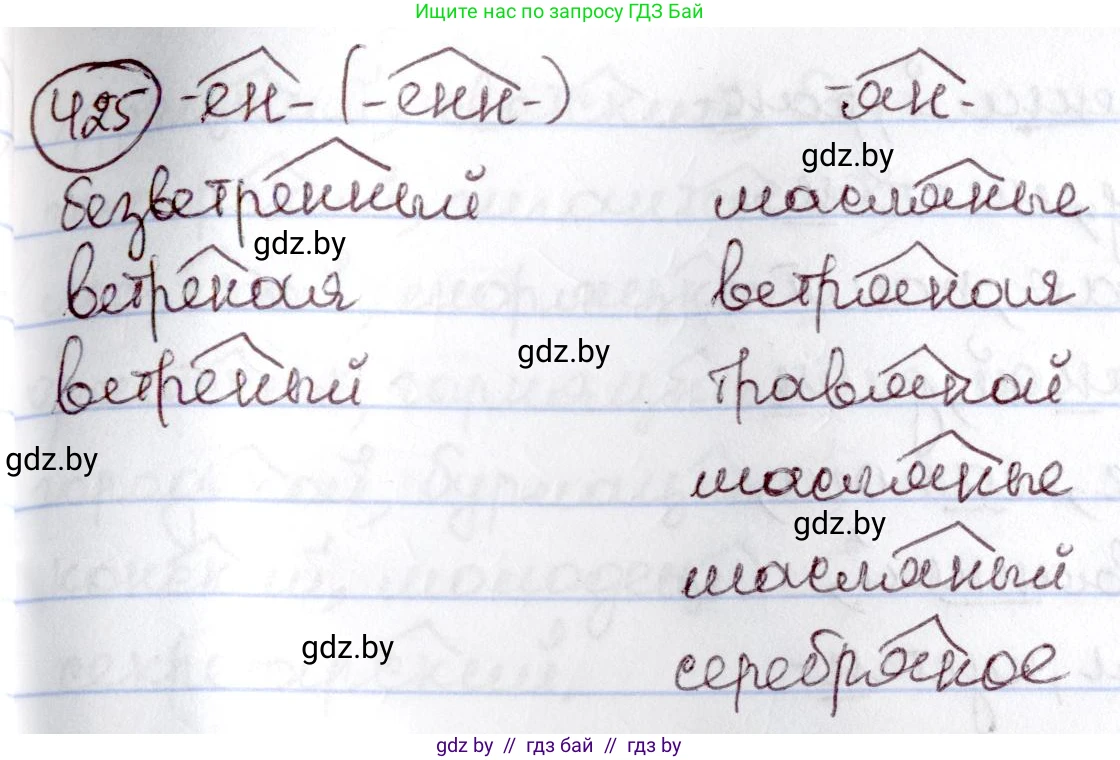 Ищите нас по запросу ГДЗ Бай
425 -ен- (-енн-) -ян-
gdz.by
безветренный масляные
gdz.by
ветреная ветряная
gdz.by
ветреный травяной
gdz.by
масляные
gdz.by
масляный
gdz.by
серебряное
gdz by // гдз бай // гдз by